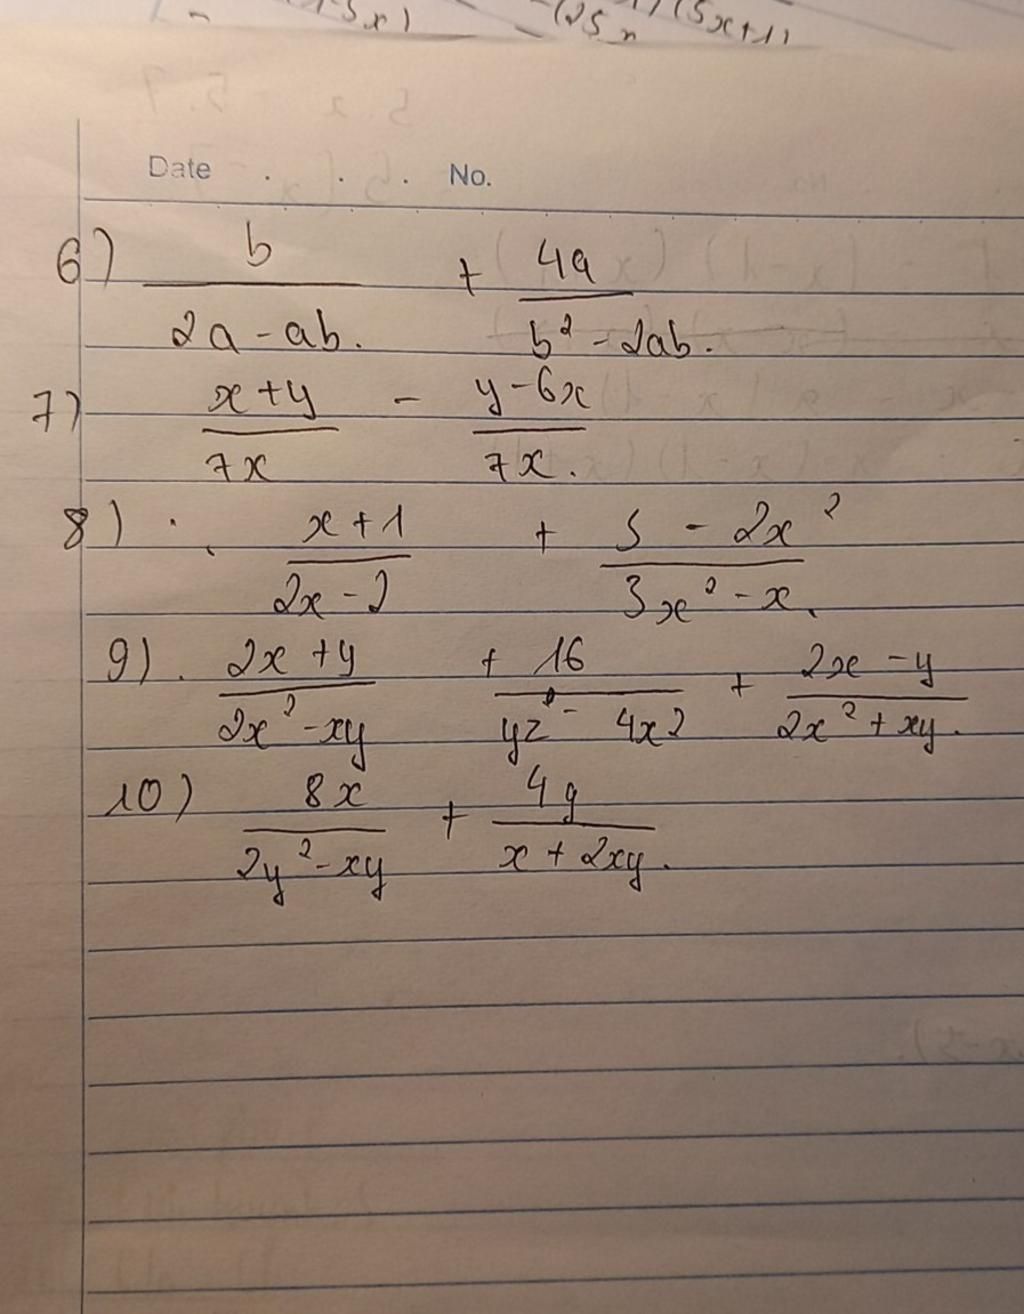 5x)
(25x
(5x+1)
Date . . . No.
6) b/(2a - ab.) + 4a/(b² - 2ab.)
7) (x + y)/(7x) - (y - 6x)/(7x.)
8) (x + 1)/(2x - 2) + (5 - 2x²)/(3x² - x.)
9). (2x + y)/(2x² - xy) + 16/(yz² - 4x2) + (2x - y)/(2x² + xy.)
10) 8x/(2y² - xy) + 4y/(x + 2xy.)